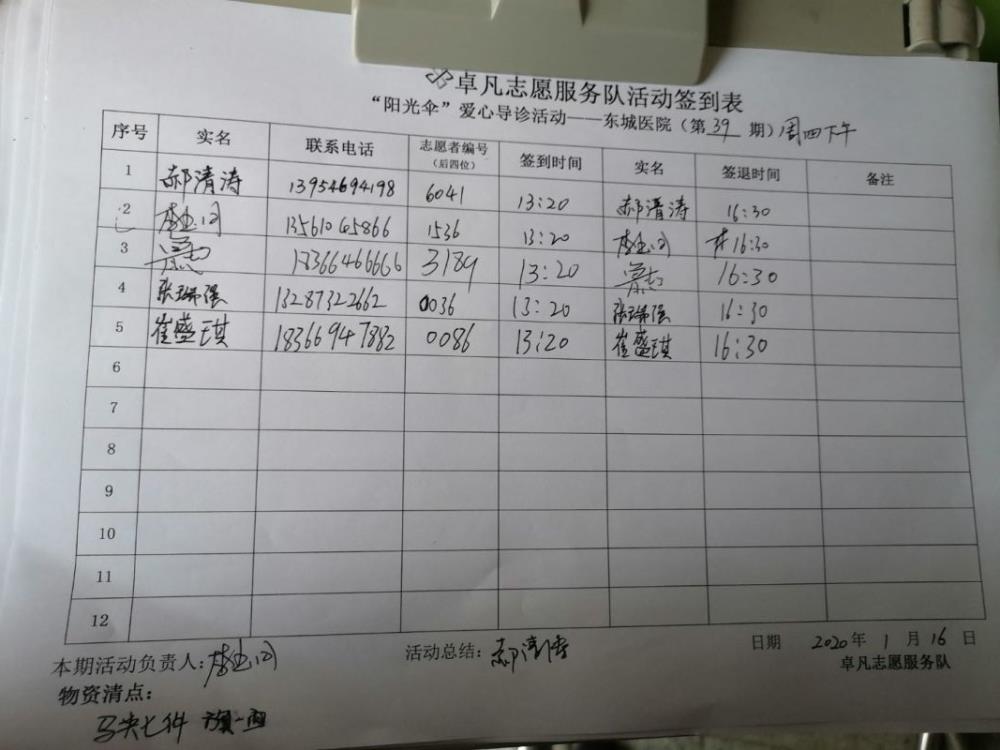 卓凡志愿服务队活动签到表
“阳光伞”爱心导诊活动——东城医院（第39期）周四下午
序号 实名 联系电话 志愿者编号（后四位） 签到时间 实名 签退时间 备注
1 郝清涛 13954694198 6041 13:20 郝清涛 16:30
2 13561045866 1536 13:20 16:30
3 18366466666 3189 13:20 16:30
4 张瑞强 13287322662 0036 13:20 张瑞强 16:30
5 崔盛琪 18366947882 0086 13:20 崔盛琪 16:30
6
7
8
9
10
11
12
本期活动负责人： 活动总结：郝清涛 日期 2020年1月16日
卓凡志愿服务队
物资清点：
马夹七件 旗一面